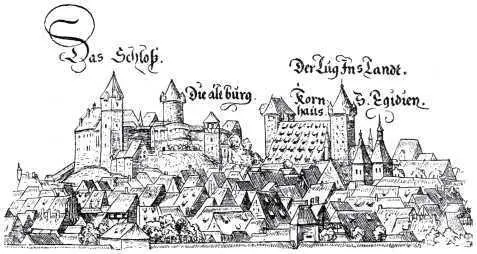 Das Schloß.
Die alt bürg.
Der Lug Ins Landt.
Korn
haus
S. Egidien.